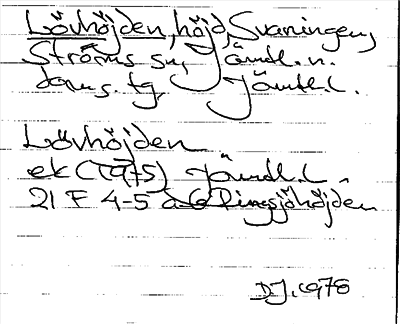 Lövhöjden, höjd, Svaningen,
Ströms sn, Jämtl. n.
doms. tg. Jämtl. l.
Lövhöjden
ek (1975) Jämtl. l.
21 F 4-5 a-b Dingsjöhöjden
DJ. 1978